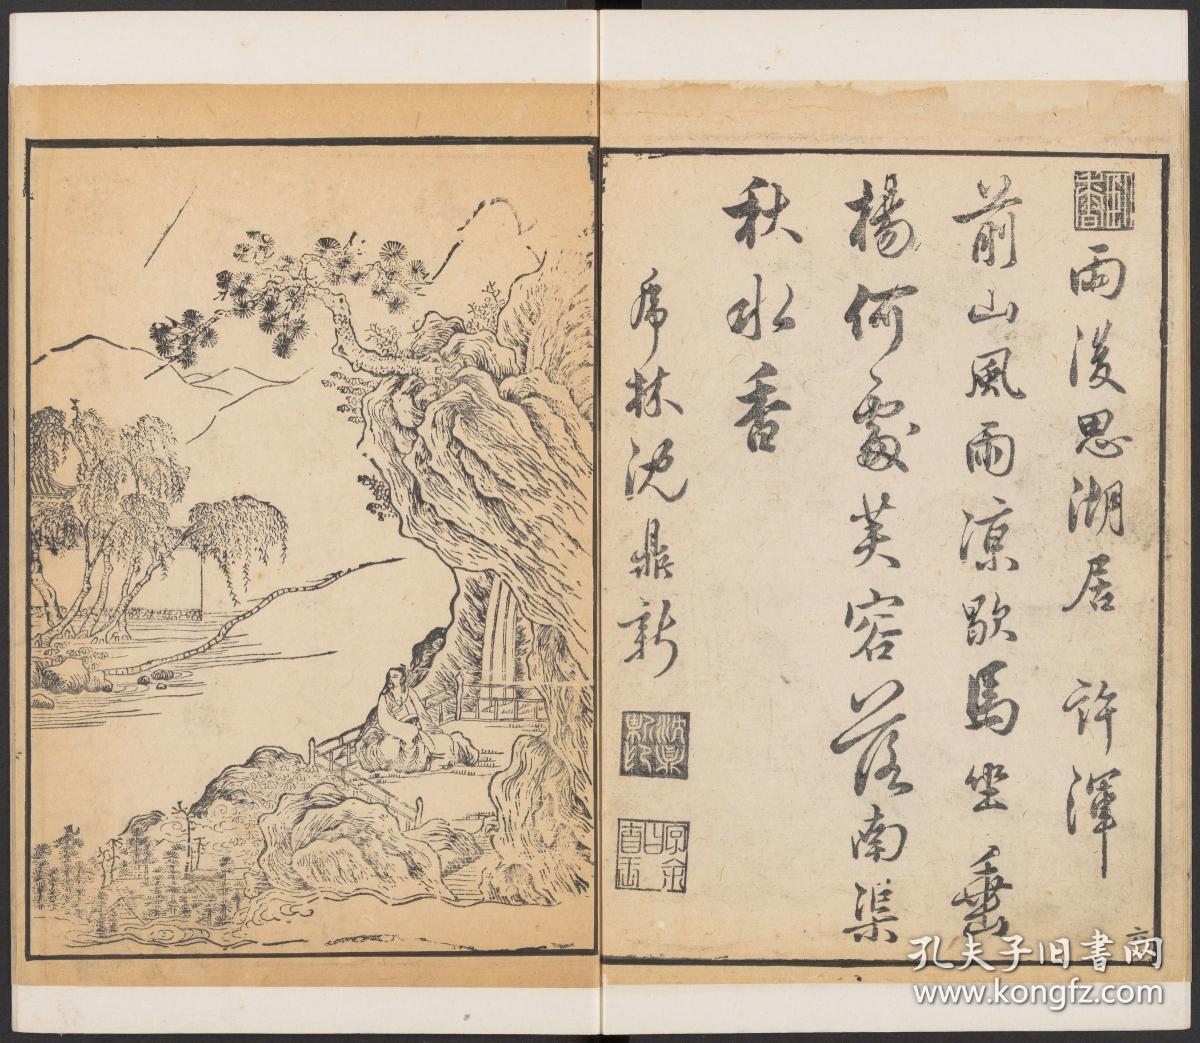 雨後思湖居　許渾
前山風雨涼歇馬坐垂
楊何處芙容落南渠
秋水香
沈鼎新
六
孔夫子旧书网
www.kongfz.com